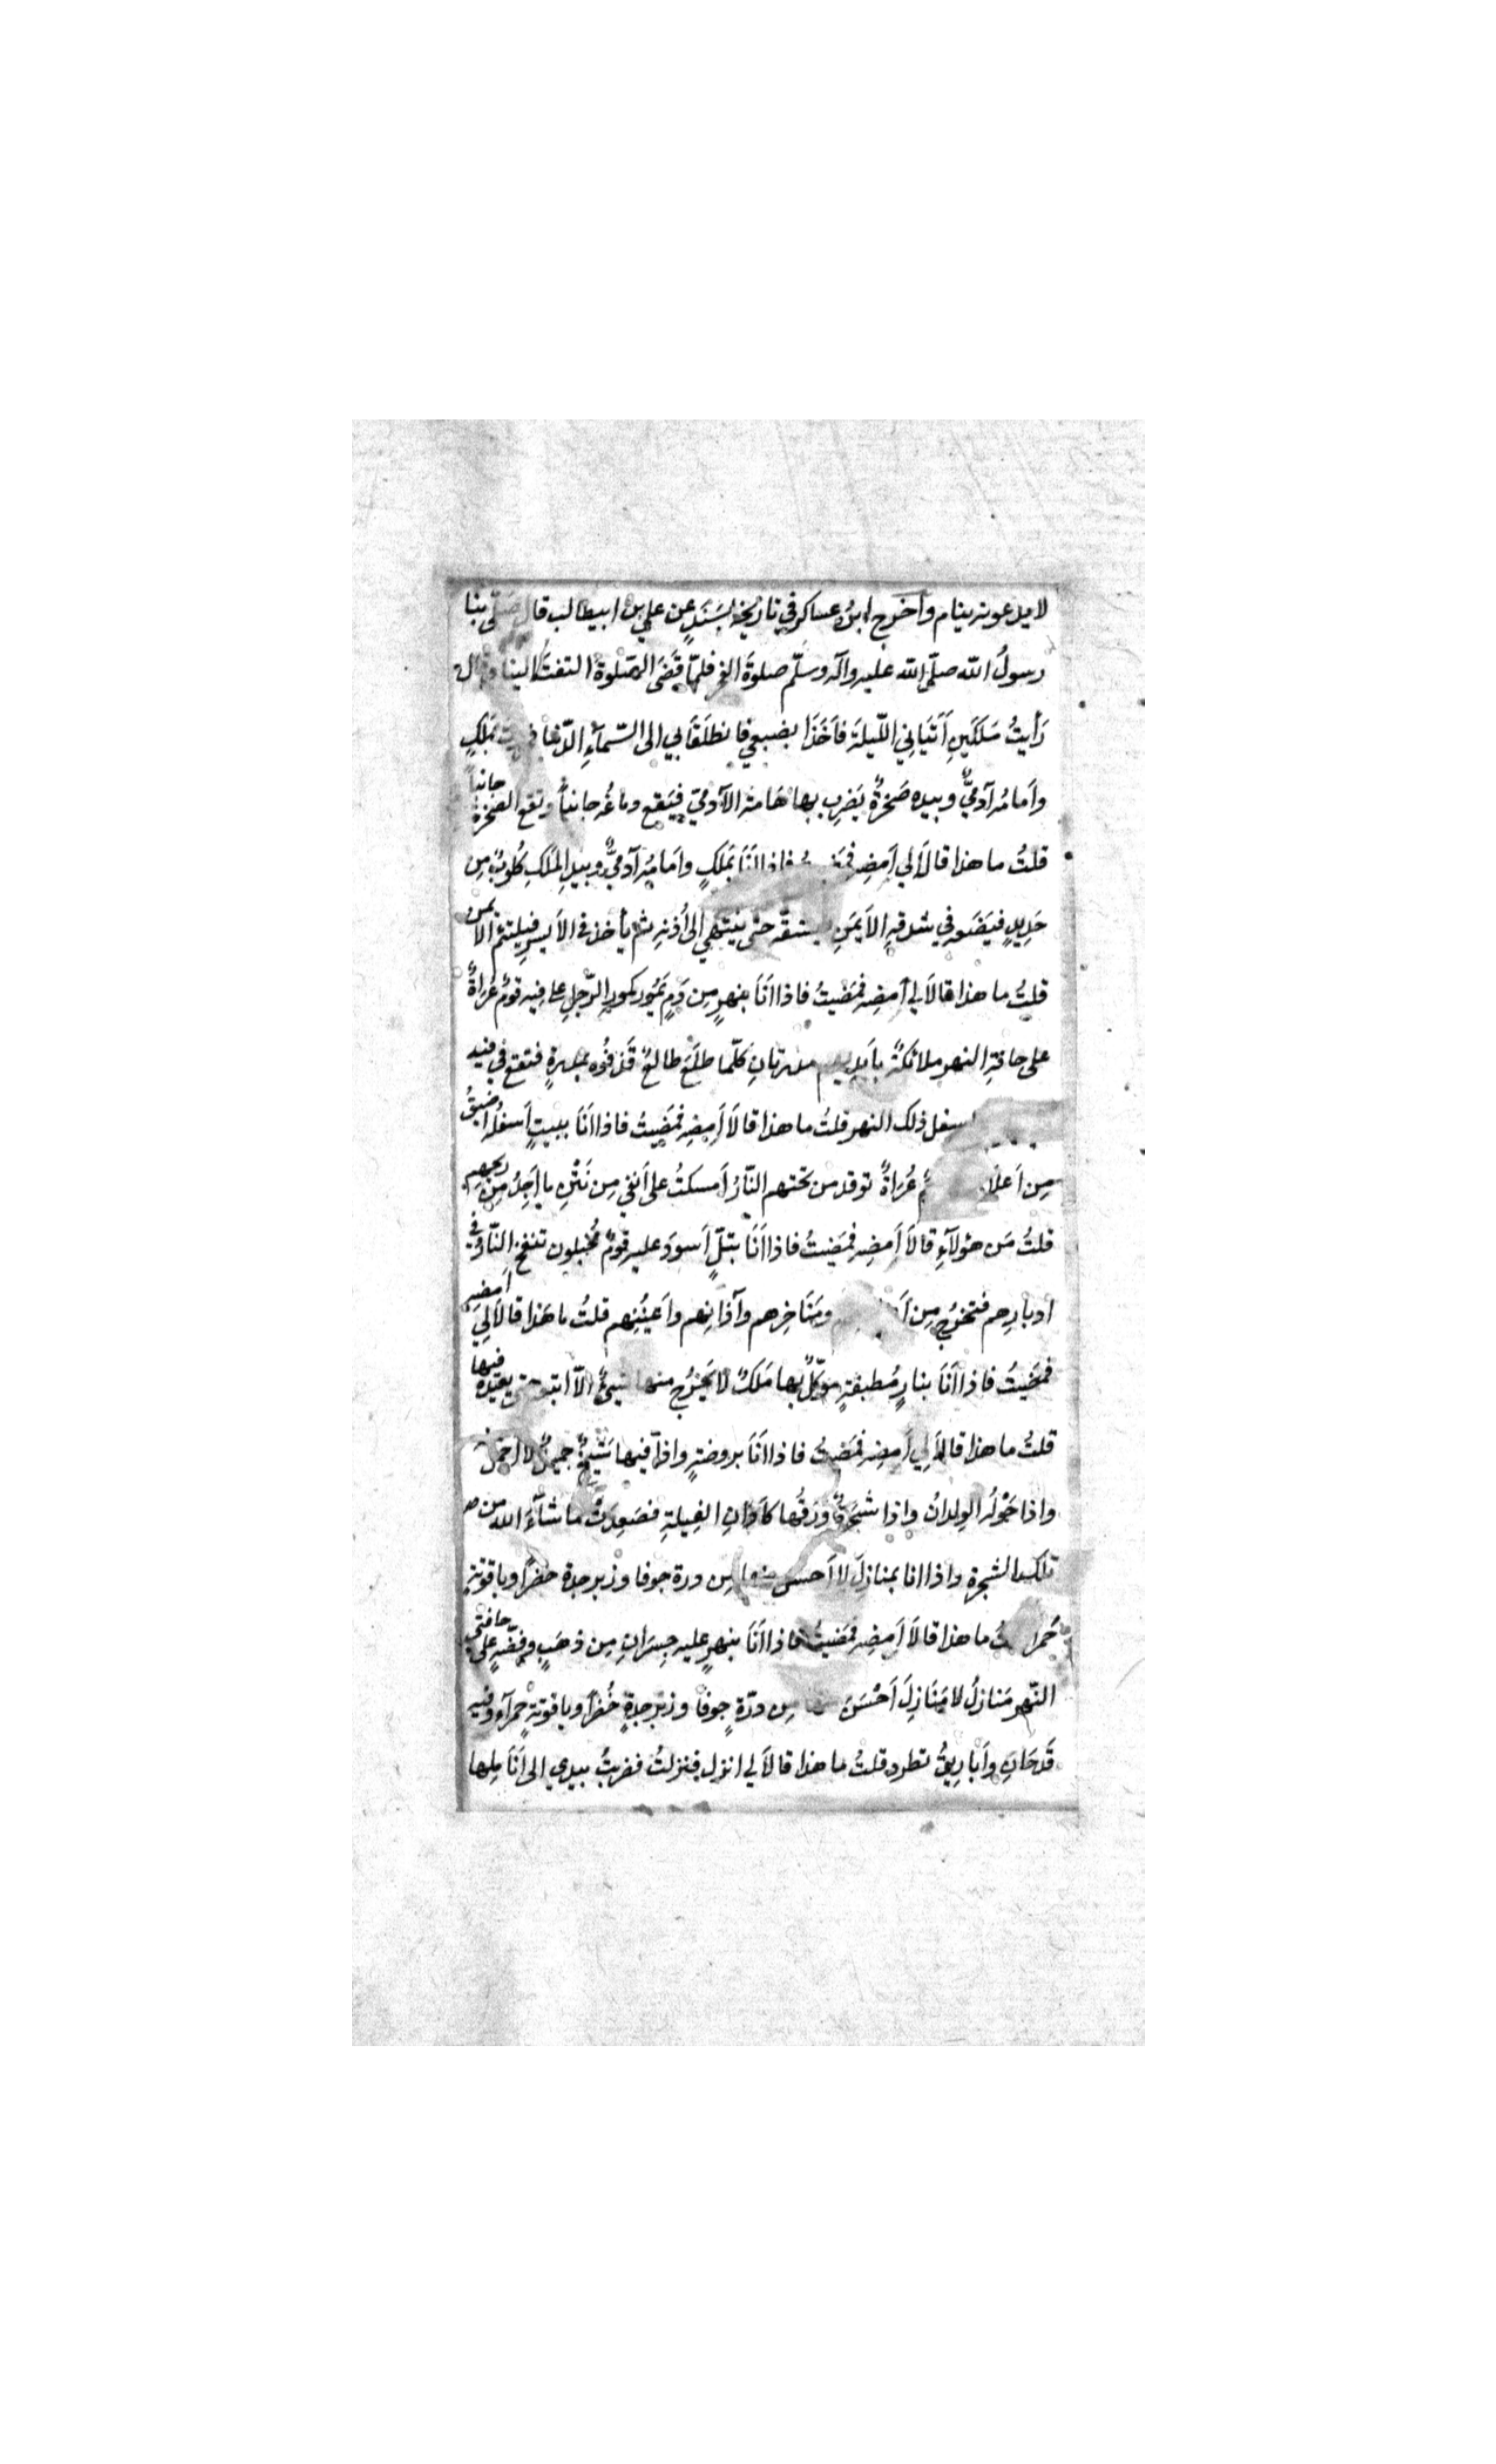 لا يدعونه ينام وأخرج ابن عساكر في تاريخه بسَنَدٍ عن علي بن ابيطالب قال صَلّى بنا
رسولُ الله صلّى الله عليه وآله وسلّم صلوةَ الفجر فلمّا قَضَى الصّلوة التفتَ الينا وقال
رَأيتُ مَلَكَينِ أَتَيَانِي اللّيلةَ فأَخَذَا بضبعي فانطلَقَا بي الى السّمآءِ الدّنيا فمررت بمَلكٍ
وأَمامُه آدميٌّ وبيده صَخرةٌ يَضرِب بها هَامةَ الآدميّ فيَقع دماغُه جانباً وتقع الصّخرة جانباً
قلتُ ما هذا قالَا لي اَمضِه فمَضيتُ فاذا اَنَا بمَلَكٍ واَمَامُه آدميٌّ وبيدِ المَلَكِ كُلوبٌ مِن
حَدِيدٍ فيَضَعه في شدقهِ الاَيمَنِ فيشقّه حتى ينتهي الى اُذنِه ثم يأخذ في الاَيسرِ فيلتئم الاَيمن
قلتُ ما هذا قالَا لي اَمضِه فمَضيتُ فاذا اَنَا بنهرٍ مِن دَمٍ يَمُور كمور المِرجل على فيه قومٌ عُرَاةٌ
على حافةِ النهر ملائكةٌ بأيديهم مدرتانِ كلّما طلَعَ طالعٌ قَذفُوه بمدرةٍ فتقع في فيه
اسفل ذلك النهر قلتُ ما هذا قالَا اَمِضِه فمَضيتُ فاذا اَنَا ببيتٍ اَسفلُه اَضيقُ
مِن اَعلاه عُرَاةٌ توقد من تحتهم النّارُ اَمسكتُ على اَنفي مِن نَتْنِ ما اَجِدُ مِن ريحهم
قلتُ مَن هؤلآءِ قالَا اَمِضِه فمَضيتُ فاذا اَنَا بتلٍّ اَسودَ عليه قومٌ مُخبلون تنفخ النّار في
ادبارِهم فتخرُج مِن ومَنَاخِرهم وآذانِهم واَعيُنِهم قلتُ ما هَذا قالَا لي اَمضِه
فمَضيتُ فاذا اَنَا بنارٍ مُطبقةٍ موكّلٌ بها مَلكٌ لا يَخرُج منها شيئٌ الّا اتبعه حتى يعيدَه فيها
قلتُ ما هذا قالَا لي اَمضِه فمَضيتُ فاذا اَنَا بروضةٍ واذا فيها شَيخٌ جميلٌ لا اجملَ
واذا حَولَه الوِلدانُ واذا شجَرةٌ ورَقُها كآذانِ الفِيلةِ فصَعِدتُ ما شآءَ الله من
تلك الشجرة واذا انا بمنازلَ لا اَحسن منها مِن درة جوفا وزبرجدة خضرا وياقوتة
حَمرا قلتُ ما هذا قالَا اَمِضِه فمَضيتُ فاذا اَنَا بنهرٍ عليه جِسرَانِ مِن ذهَبٍ وفِضّةٍ على حافتي
النّهر مَنازلُ لا مَنَازِلَ اَحْسَنَ منها مِن درّةٍ جوفا وزبرجدةٍ خُضرا وياقوتةٍ حمرآء وفيه
قَدحَان واَبارِيقُ تطرد قلتُ ما هذا قالَا لي انزل فنزلتُ فضربتُ بيدي الى اِنَاءٍ منها